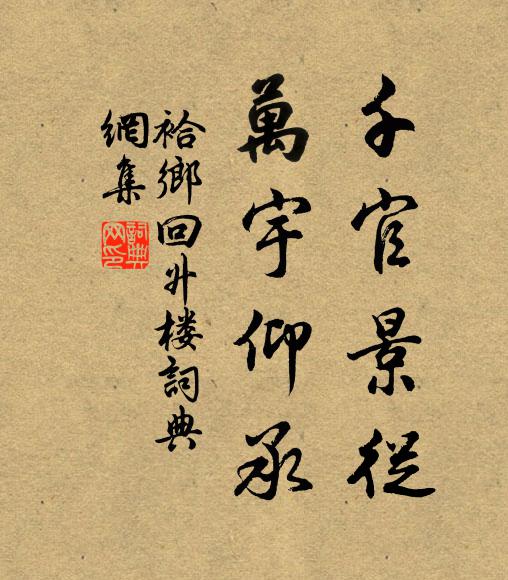 千官景從
萬宇仰承
袷鄉回升楼詞典
網集
詞典
网印